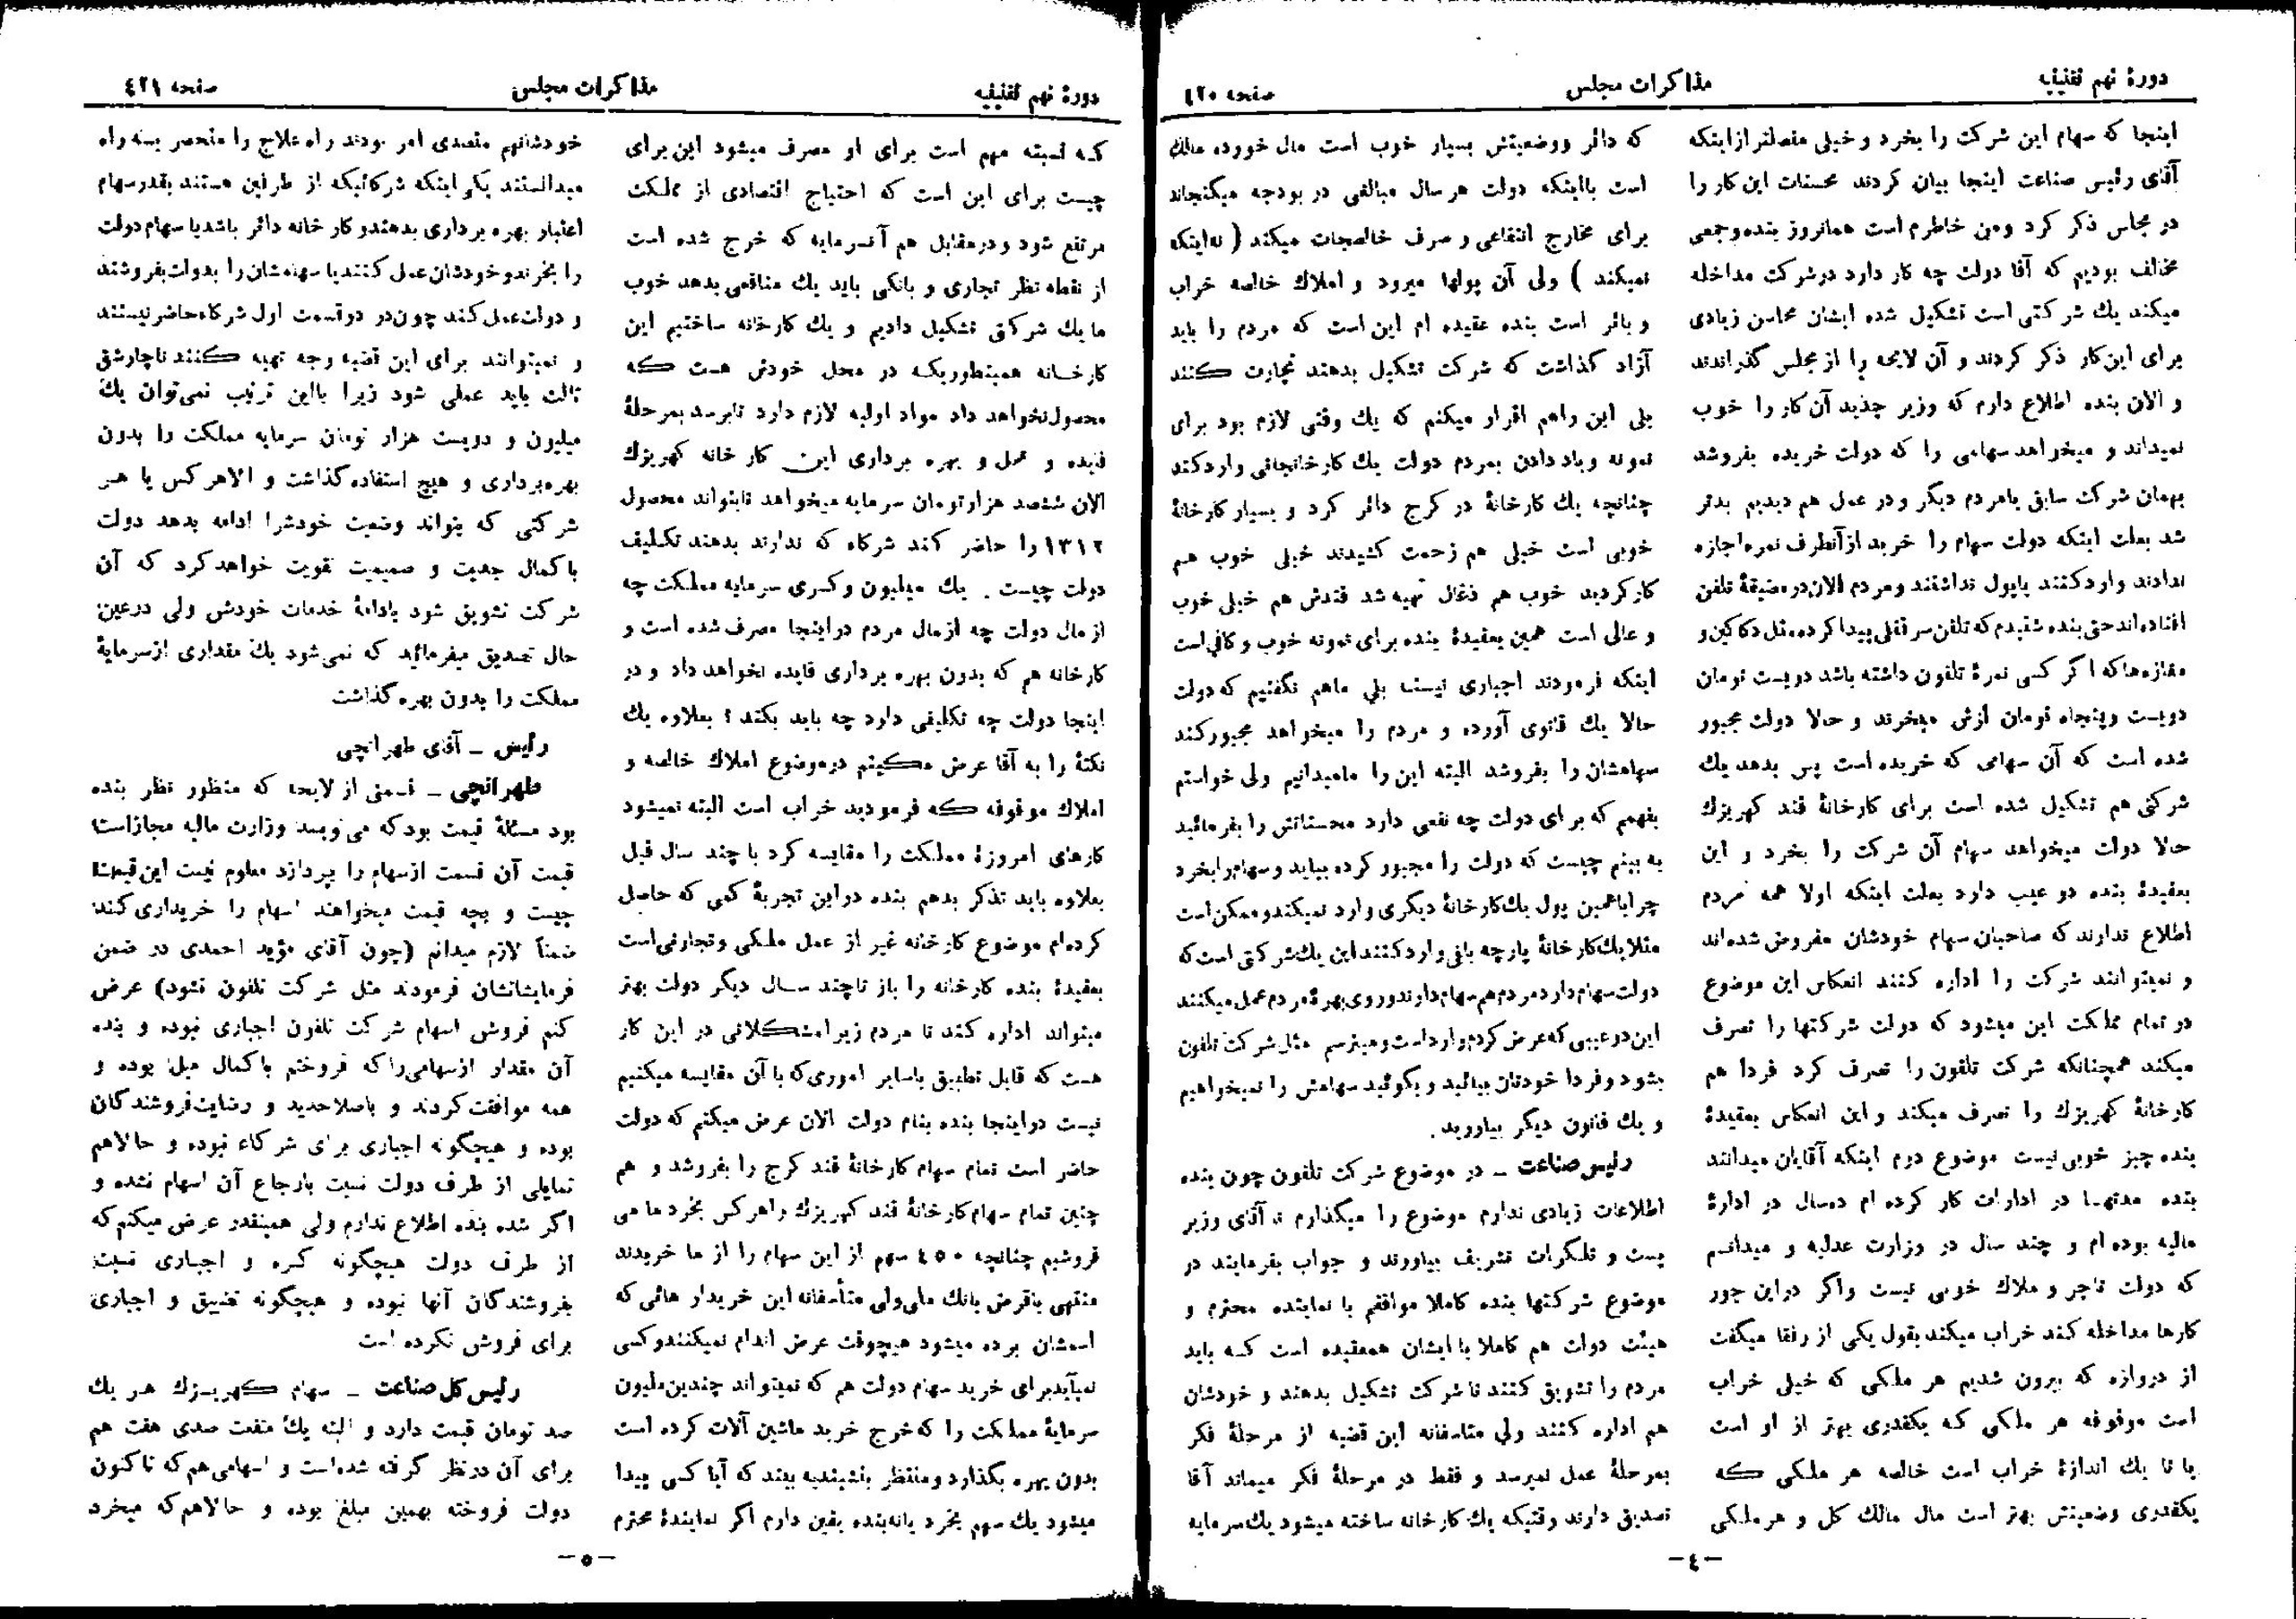 دورهٔ نهم تقنینیه
مذاکرات مجلس
صفحه ٤٢٠
اینجا که سهام این شرکت را بخرد و خیلی مفصلتر از اینکه
آقای رئیس صناعت اینجا بیان کردند محسنات این کار را
در مجلس ذکر کرد ومن خاطرم است همانروز بنده و جمعی
مخالف بودیم که آقا دولت چه کار دارد در شرکت مداخله
میکند یك شرکتی است تشکیل شده ایشان محاسن زیادی
برای این کار ذکر کردند و آن لایحه را از مجلس گذراندند
و الان بنده اطلاع دارم که وزیر جدید آن کار را خوب
نمیداند و میخواهد سهامی را که دولت خریده بفروشد
بهمان شرکت سابق یا مردم دیگر و در عمل هم دیدیم بدتر
شد بعلت اینکه دولت سهام را خرید از آنطرف نمره اجازه
ندادند وارد کنند یا پول نداشتند و مردم الان در مضیقهٔ تلفن
افتاده‌اند حق بنده شنیدم که تلفن سرقفلی پیدا کرده مثل دکاکین و
مغازه‌ها که اگر کسی نمرهٔ تلفون داشته باشد دویست تومان
دویست و پنجاه تومان ازش میخرند و حالا دولت مجبور
شده است که آن سهامی که خریده است پس بدهد یك
شرکتی هم تشکیل شده است برای کارخانهٔ قند کهریزك
حالا دولت میخواهد سهام آن شرکت را بخرد و این
بعقیدهٔ بنده دو عیب دارد بعلت اینکه اولا همه مردم
اطلاع ندارند که صاحبان سهام خودشان مقروض شده‌اند
و نمیتوانند شرکت را اداره کنند انعکاس این موضوع
در تمام مملکت این میشود که دولت شرکتها را تصرف
میکند همچنانکه شرکت تلفون را تصرف کرد فردا هم
کارخانهٔ کهریزك را تصرف میکند و این انعکاس بعقیدهٔ
بنده چیز خوبی نیست موضوع دوم اینکه آقایان میدانند
بنده مدتها در ادارات کار کرده ام ده‌سال در ادارهٔ
مالیه بوده ام و چند سال در وزارت عدلیه و میدانم
که دولت تاجر و ملاك خوبی نیست و اگر در این جور
کارها مداخله کند خراب میکند بقول یکی از رفقا میگفت
از دروازه که بیرون شدیم هر ملکی که خیلی خراب
است موقوفه هر ملکی که یکقدری بهتر از او است
یا تا یك اندازهٔ خراب است خالصه هر ملکی که
یکقدری وضعیتش بهتر است مال مالك کل و هر ملکی
که دائر ووضعیتش بسیار خوب است مال خورده مالك
است با اینکه دولت هر سال مبالغی در بودجه میگنجاند
برای مخارج انتفاعی و صرف خالصجات میکند ( نه اینکه
نمیکند ) ولی آن پولها میرود و املاك خالصه خراب
و بائر است بنده عقیده ام این است که مردم را باید
آزاد گذاشت که شرکت تشکیل بدهند تجارت کنند
بلی این را هم اقرار میکنم که یك وقتی لازم بود برای
نمونه و یاد دادن بمردم دولت یك کارخانجاتی وارد کند
چنانچه یك کارخانهٔ در کرج دائر کرد و بسیار کارخانهٔ
خوبی است خیلی هم زحمت کشیدند خیلی خوب هم
کار کردید خوب هم ذغال تهیه شد قندش هم خیلی خوب
و عالی است همین بعقیدهٔ بنده برای نمونه خوب و کافی است
اینکه فرمودند اجباری نیست بلی ما هم نگفتیم که دولت
حالا یك قانونی آورده و مردم را میخواهد مجبور کند
سهامشان را بفروشد البته این را ما میدانیم ولی خواستم
بفهمم که برای دولت چه نفعی دارد محسناتش را بفرمائید
به بینم چیست که دولت را مجبور کرده بیاید و سهام را بخرد
چرا با همین پول یك کارخانهٔ دیگری وارد نمیکند و ممکن است
مثلا یك کارخانهٔ پارچه بافی وارد کنند این یك شرکتی است که
دولت سهام دارد مردم هم سهام دارند و روی بهرهٔ مردم عمل میکنند
این دو عیبی که عرض کردم وارد است و میترسم مثل شرکت تلفون
بشود و فردا خودتان بیائید و بگوئید سهامش را نمیخواهیم
و یك قانون دیگر بیاورید.
رئیس صناعت ـ در موضوع شرکت تلفون چون بنده
اطلاعات زیادی ندارم موضوع را میگذارم تا آقای وزیر
پست و تلگرات تشریف بیاورند و جواب بفرمایند در
موضوع شرکتها بنده کاملا موافقم با نماینده محترم و
هیئت دولت هم کاملا با ایشان همعقیده است که باید
مردم را تشویق کنند تا شرکت تشکیل بدهند و خودشان
هم اداره کنند ولی متاسفانه این قضیه از مرحلهٔ فکر
بمرحلهٔ عمل نمیرسد و فقط در مرحلهٔ فکر میماند آقا
تصدیق دارند وقتیکه یك کارخانه ساخته میشود یك سرمایه
ـ٤ـ
دورهٔ نهم تقنینیه
مذاکرات مجلس
صفحه ٤٢١
که نسبته مهم است برای او مصرف میشود این برای
چیست برای این است که احتیاج اقتصادی از مملکت
مرتفع شود و در مقابل هم آنسرمایه که خرج شده است
از نقطه نظر تجاری و بانکی باید یك منافعی بدهد خوب
ما یك شرکتی تشکیل دادیم و یك کارخانه ساختیم این
کارخانه همینطوریکه در محل خودش هست که
محصول نخواهد داد مواد اولیه لازم دارد تا برسد بمرحلهٔ
فایده و عمل و بهره برداری این کارخانه کهریزك
الان ششصد هزار تومان سرمایه میخواهد تا بتواند محصول
١٣١٢ را حاضر کند شرکاء که ندارند بدهند تکلیف
دولت چیست . یك میلیون و کسری سرمایه مملکت چه
از مال دولت چه از مال مردم در اینجا مصرف شده است و
کارخانه هم که بدون بهره برداری فایده نخواهد داد و در
اینجا دولت چه تکلیفی دارد چه باید بکند ؟ بعلاوه یك
نکتهٔ را به آقا عرض میکنم در موضوع املاك خالصه و
املاك موقوفه که فرمودید خراب است البته نمیشود
کارهای امروزهٔ مملکت را مقایسه کرد با چند سال قبل
بعلاوه باید تذکر بدهم بنده در این تجربهٔ کمی که حاصل
کرده‌ام موضوع کارخانه غیر از عمل ملکی و تجارتی است
بعقیدهٔ بنده کارخانه را باز تا چند سال دیگر دولت بهتر
میتواند اداره کند تا مردم زیرا مشکلاتی در این کار
هست که قابل تطبیق با سایر اموری که با آن مقایسه میکنیم
نیست در اینجا بنده بنام دولت الان عرض میکنم که دولت
حاضر است تمام سهام کارخانهٔ قند کرج را بفروشد و هم
چنین تمام سهام کارخانهٔ قند کهریزك را هر کس بخرد ما می
فروشیم چنانچه ٤٥٠ سهم از این سهام را از ما خریدند
منتهی با قرض بانك ملی ولی متأسفانه این خریدار هائی که
اسمشان برده میشود هیچوقت عرض اندام نمیکنند و کسی
نمیآید برای خرید سهام دولت هم که نمیتواند چندین ملیون
سرمایهٔ مملکت را که خرج خرید ماشین آلات کرده است
بدون بهره بگذارد و منتظر بنشیند به بیند که آیا کسی پیدا
میشود یك سهم بخرد یا نه بنده یقین دارم اگر نمایندهٔ محترم
خودشانهم متصدی امر بودند راه علاج را منحصر بسه راه
میدانستند یکی اینکه شرکائیکه از طرفین هستند بقدر سهام
اعتبار بهره برداری بدهند و کارخانه دائر باشد یا سهام دولت
را بخرند و خودشان عمل کنند یا سهامشان را بدولت بفروشند
و دولت عمل کند چون در دو قسمت اول شرکاء حاضر نیستند
و نمیتوانند برای این قضیه وجه تهیه کنند ناچار شق
ثالث باید عملی شود زیرا با این ترتیب نمی‌توان یك
میلیون و دویست هزار تومان سرمایه مملکت را بدون
بهره‌برداری و هیچ استفاده گذاشت و الا هر کس یا هر
شرکتی که بتواند وضعیت خودش را ادامه بدهد دولت
با کمال جدیت و صمیمیت تقویت خواهد کرد که آن
شرکت تشویق شود بادامهٔ خدمات خودش ولی در عین
حال تصدیق میفرمائید که نمی‌شود یك مقداری از سرمایهٔ
مملکت را بدون بهره گذاشت
رئیس ـ آقای طهرانچی
طهرانچی ـ قسمتی از لایحه که منظور نظر بنده
بود مسئلهٔ قیمت بود که می‌نویسد وزارت مالیه مجاز است
قیمت آن قسمت از سهام را بپردازد معلوم نیست این قیمت
چیست و بچه قیمت میخواهند اسهام را خریداری کنند
ضمناً لازم میدانم (چون آقای مؤید احمدی در ضمن
فرمایشاتشان فرمودند مثل شرکت تلفون نشود) عرض
کنم فروش اسهام شرکت تلفون اجباری نبوده و بنده
آن مقدار از سهامی را که فروختم با کمال میل بوده و
همه موافقت کردند و باصلاحدید و رضایت فروشندگان
بوده و هیچگونه اجباری برای شرکاء نبوده و حالا هم
تمایلی از طرف دولت نسبت بارجاع آن اسهام نشده و
اگر شده بنده اطلاع ندارم ولی همینقدر عرض میکنم که
از طرف دولت هیچگونه کره و اجباری نسبت
بفروشندگان آنها نبوده و هیچگونه تضییق و اجباری
برای فروش نکرده است
رئیس کل صناعت ـ سهام کهریزك هر یك
صد تومان قیمت دارد و البته یك منفعت صدی هفت هم
برای آن در نظر گرفته شده است و اسهامی هم که تا کنون
دولت فروخته بهمین مبلغ بوده و حالا هم که میخرد
ـ٥ـ